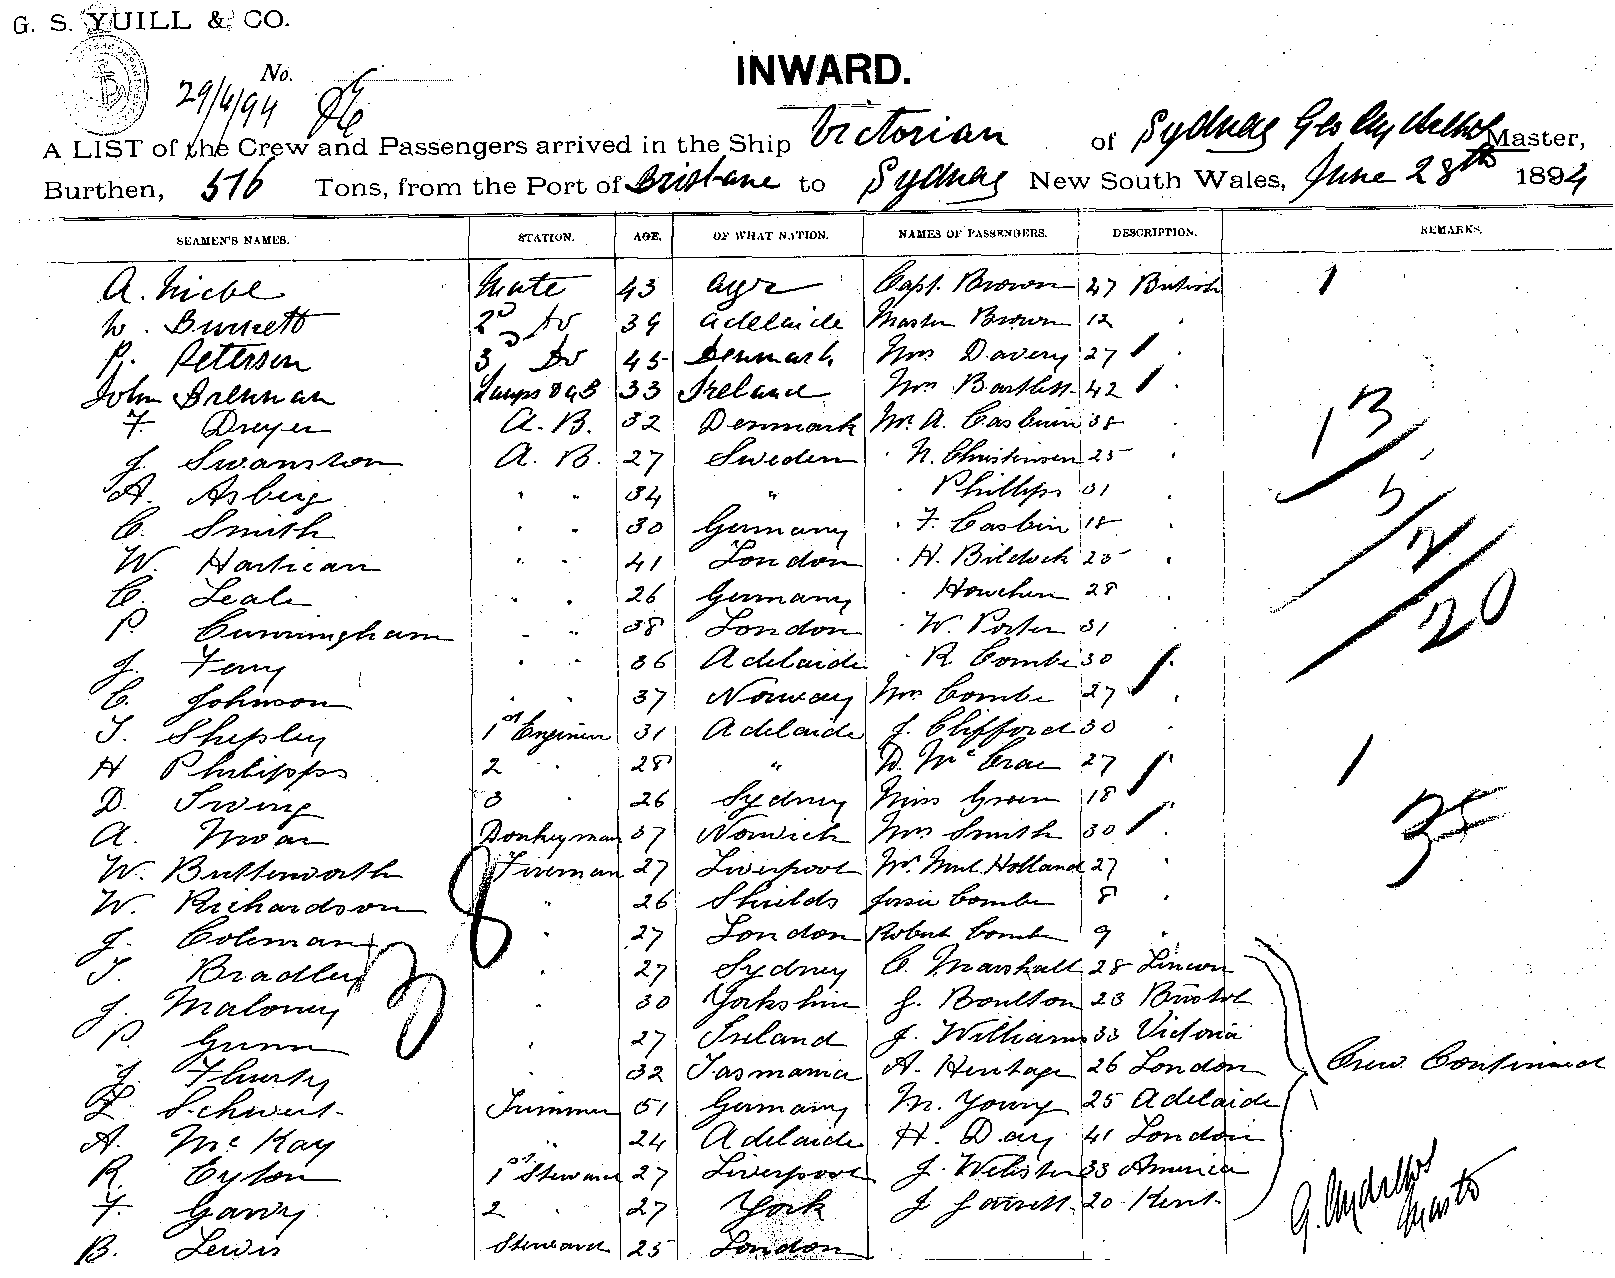 G. S. YUILL & CO.
No.
29/6/94
INWARD.
A LIST of the Crew and Passengers arrived in the Ship Victorian of Sydney Geo Master,
Burthen, 516 Tons, from the Port of Brisbane to Sydney New South Wales, June 28th 1894
SEAMEN'S NAMES. STATION. AGE. OF WHAT NATION. NAMES OF PASSENGERS. DESCRIPTION. REMARKS.
A. Mate 43 Ayr Capt. Brown 47 British
W. Burnett 2nd Do 39 Adelaide Master Brown 12 "
P. Peterson 3 Do 45 Denmark Mrs Davery 27 "
John Brennan Lamps & AB 33 Ireland Mrs Bartlett 42 "
F. Dreyer A. B. 32 Denmark Mr. A. 38
J. Swanston A. B. 27 Sweden " N. Christensen 25 "
A. Asberg " " 34 " " Phillips 31 "
C. Smith " " 30 Germany " F. 18 "
W. Hartican " " 41 London " H. 25 "
C. Leale " " 26 Germany " Howchen 28 "
P. Cunningham " " 38 London " W. Porter 31 "
J. Terry " " 36 Adelaide " R Combe 30 "
C. Johnson " " 37 Norway Mrs Combe 27 "
T. Shepley 1st Engineer 31 Adelaide J. Clifford 30 "
H Philipps 2 " 28 " D. McCrae 27 "
D. Ewing 3 " 26 Sydney Miss Green 18 "
A. Moar Donkeyman 37 Norwich Mrs Smith 30 "
W. Butterworth Fireman 27 Liverpool Mr. Holland 27 "
W. Richardson " 26 Shields Jessie Combe 8 "
J. Coleman " 27 London Robert Combe 9 "
T. Bradley " 27 Sydney C. Marshall 28
J. Maloney " 30 Yorkshire G. Boulton 23 Bristol
P. Gunn " 27 Ireland J. Williams 33 Victoria
J. " 32 Tasmania A. Heritage 26 London Crew Continued
L. Schwert Trimmer 51 Germany M. Young 25 Adelaide
A. McKay " 24 Adelaide H. Day 41 London
R. Eyton 1st Steward 27 Liverpool J. Webster 33 America
F. Garry 2 " 27 York J Garrett 20 Kent
B. Lewis Steward 25 London
1
13
5
2
20
1
35
8
3
G. Master